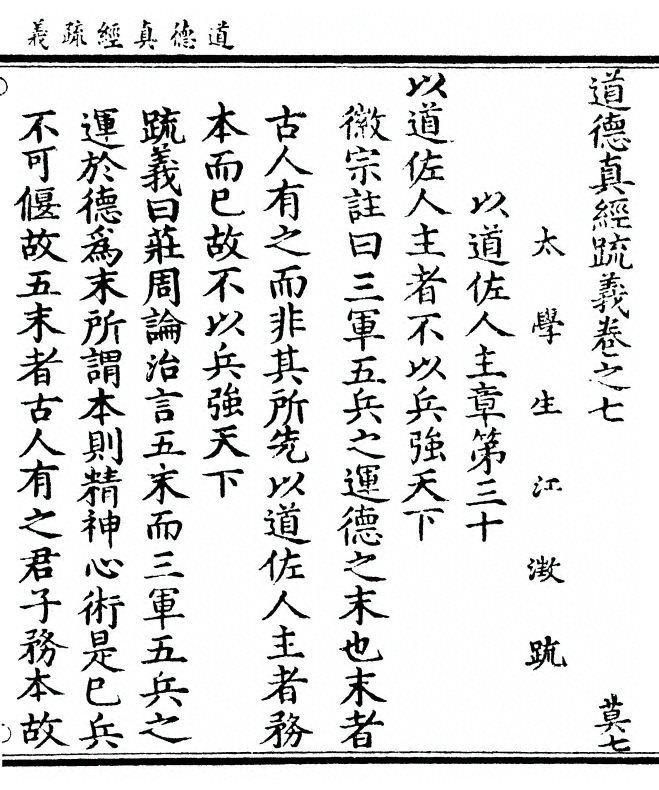 道德真經疏義
道德真經疏義卷之七
莫七
太學生江澂疏
以道佐人主章第三十
以道佐人主者不以兵強天下
徽宗註曰三軍五兵之運德之末也末者
古人有之而非其所先以道佐人主者務
本而已故不以兵強天下
疏義曰莊周論治言五末而三軍五兵之
運於德為末所謂本則精神心術是已兵
不可偃故五末者古人有之君子務本故